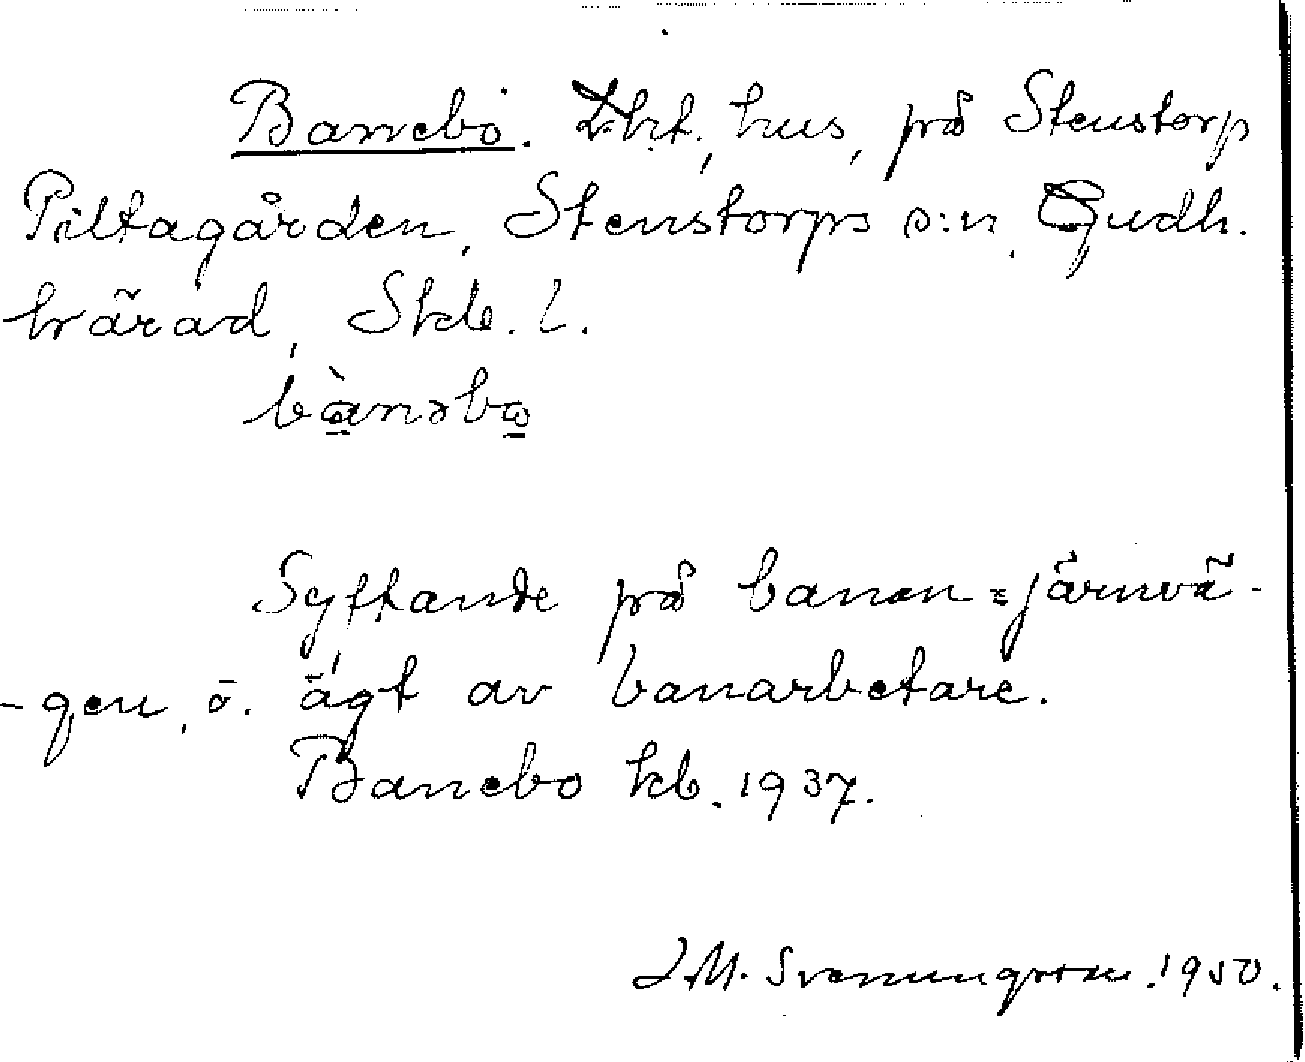 Banebo. Lht., hus, på Stenstorp
Piltagården, Stenstorps s:n, Gudh.
härad, Skb. l.
bànəbo
Syftande på banan = järnvä-
-gen, o. ägt av banarbetare.
Banebo kb. 1937.
J.M. Svenungsson. 1950.